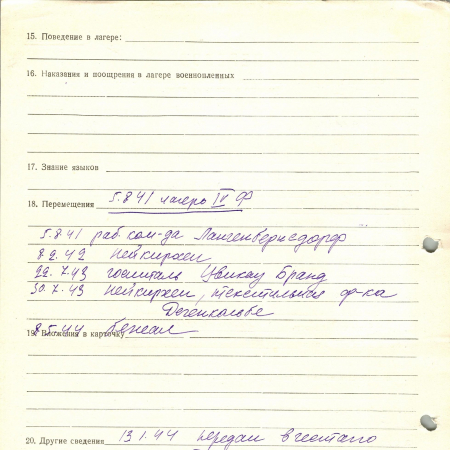 15. Поведение в лагере:
16. Наказания и поощрения в лагере военнопленных
17. Знание языков
18. Перемещения 5.8 41 лагерь IV Ф
5.8 41 раб. ком-да Лангенбернсдорф
8 2. 42 Нейкирхен
22. 7. 43 госпиталь Цвикау Бранд
30. 7. 43 Нейкирхен, текстильная ф-ка
Дегенкольбе
19. Вложения в карточку
8. 5. 44 бежал
20. Другие сведения 13 1. 44 передан в гестапо